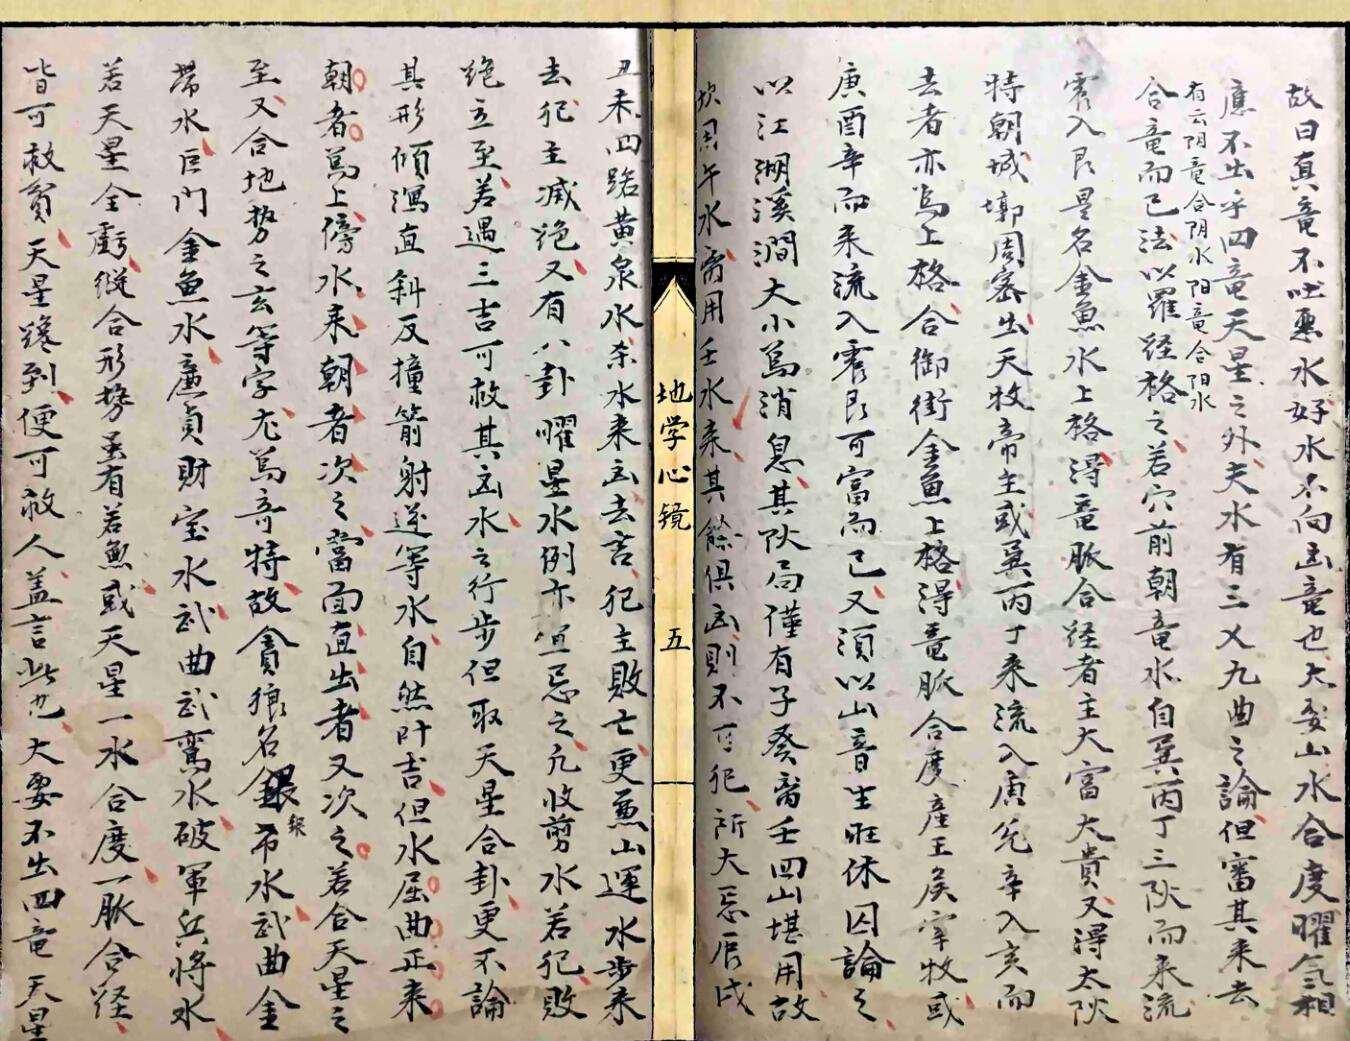 故曰真竜不吐恶水好水不向凶竜也大要山水合度曜气相
應不出乎四竜天星之外夫水有三乂九曲之論但審其来去
有云阴竜合阴水阳竜合阳水
合竜而已法以羅経格之若穴前朝竜水自巽丙丁三阦而来流
入艮是名金魚水上格淂竜脈合経者主大富大貴又淂太阦
特朝城墎周密出天牧帝主或巽丙丁来流入庚兊辛入亥而
去者亦為上格合御街金魚上格淂竜脈合度產王矦宰牧或
庚酉辛而来流入艮可富而已又湏以山音生旺休囚論之
以江湖溪澗大小為消息其阦局僅有子癸壬四山堪用故
坎局午水用壬水来其餘俱凶則不可犯所大忌辰戌
地学心镜
五
丑未四路黄泉水杀水来凶去吉犯主敗亡更兼山運水步来
去犯主減绝又有八卦曜星水例亦宜忌之凢收剪水若犯敗
绝立至若遇三吉可救其凶水之行步但取天星合卦更不論
其形傾瀉直斜反撞箭射逆等水自然叶吉但水屈曲正来
朝者為上傍水来朝者次之當面直出者又次之若合天星之
至又合地势之玄等字尤為竒特故貪狼名銀帶水武曲金
帶水巨門金魚水廉貞財宝水武曲武鸞水破軍兵將水
若天星全虧縱合形势虽有若無或天星一水合度一脈合経
皆可救貧天星纔到便可救人盖言此也大要不出四竜天星